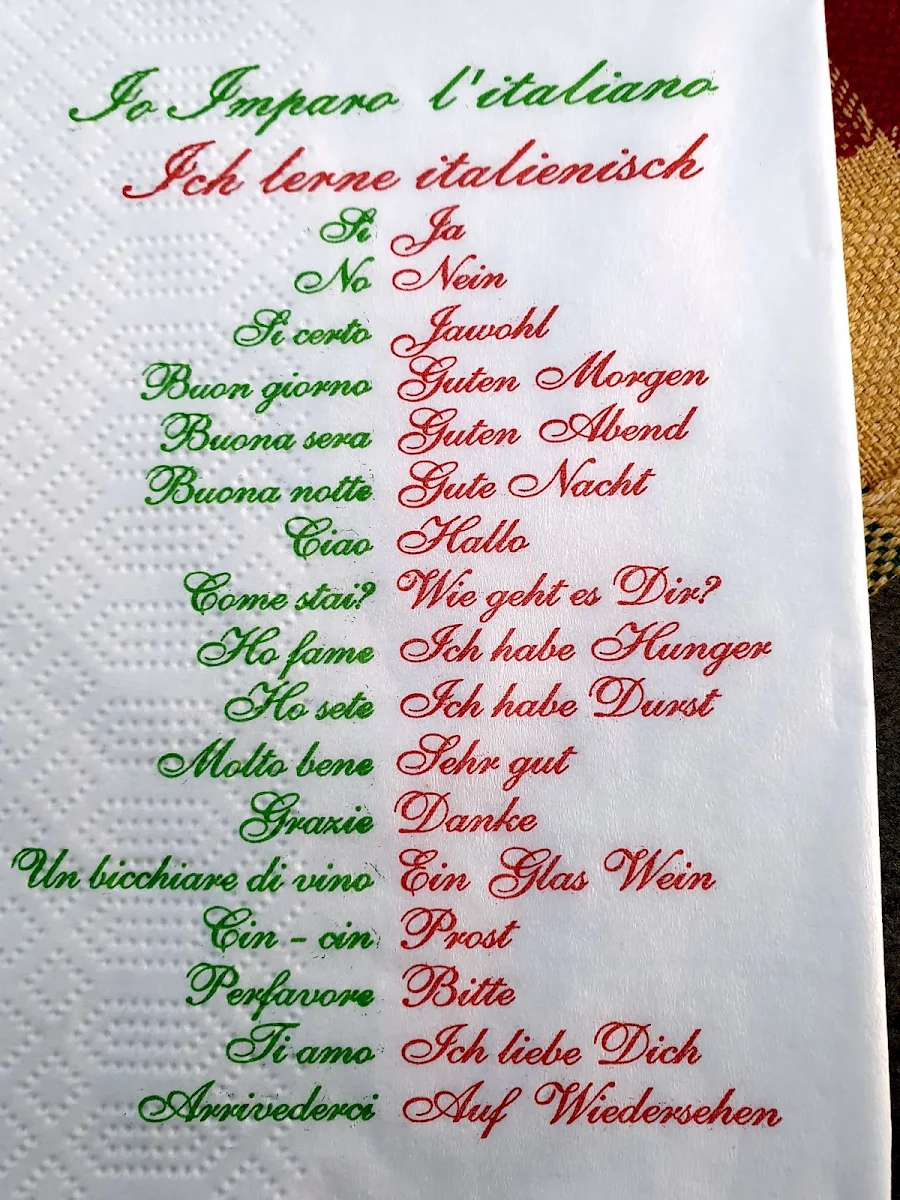 Io Imparo l'italiano
Ich lerne italienisch
Si Ja
No Nein
Si certo Jawohl
Buon giorno Guten Morgen
Buona sera Guten Abend
Buona notte Gute Nacht
Ciao Hallo
Come stai? Wie geht es Dir?
Ho fame Ich habe Hunger
Ho sete Ich habe Durst
Molto bene Sehr gut
Grazie Danke
Un bicchiare di vino Ein Glas Wein
Cin - cin Prost
Perfavore Bitte
Ti amo Ich liebe Dich
Arrivederci Auf Wiedersehen